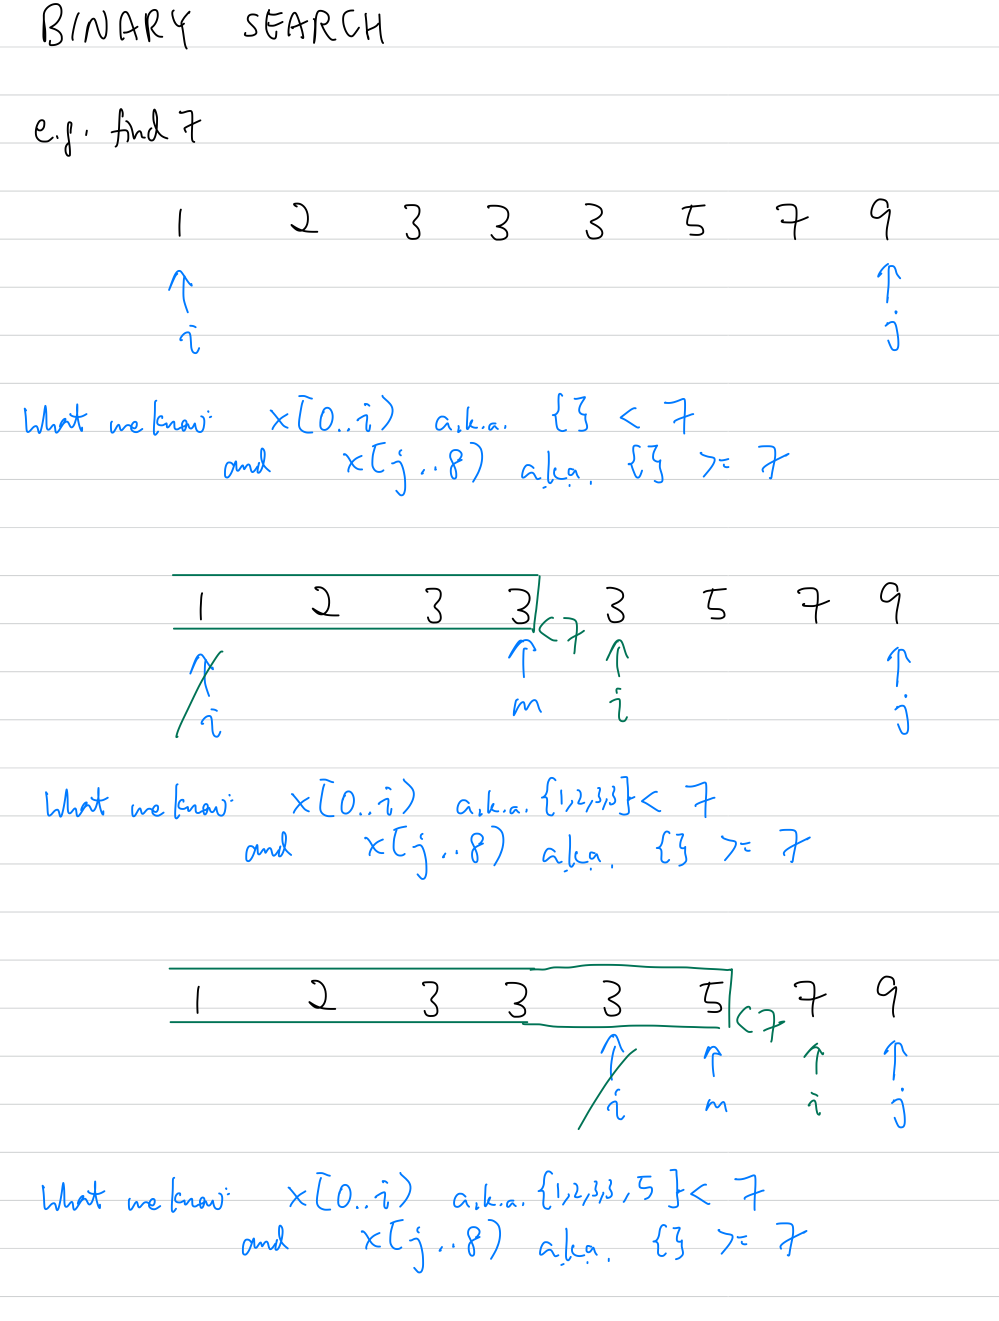 BINARY SEARCH
e.g. find 7
1 2 3 3 3 5 7 9
↑ ↑
i j
What we know: x[0..i) a.k.a. {} < 7
and x[j..8) a.k.a. {} >= 7
1 2 3 3 3 5 7 9
<7
↑ ↑ ↑ ↑
i m i j
What we know: x[0..i) a.k.a. {1,2,3,3} < 7
and x[j..8) a.k.a. {} >= 7
1 2 3 3 3 5 7 9
<7
↑ ↑ ↑ ↑
i m i j
What we know: x[0..i) a.k.a. {1,2,3,3,5} < 7
and x[j..8) a.k.a. {} >= 7